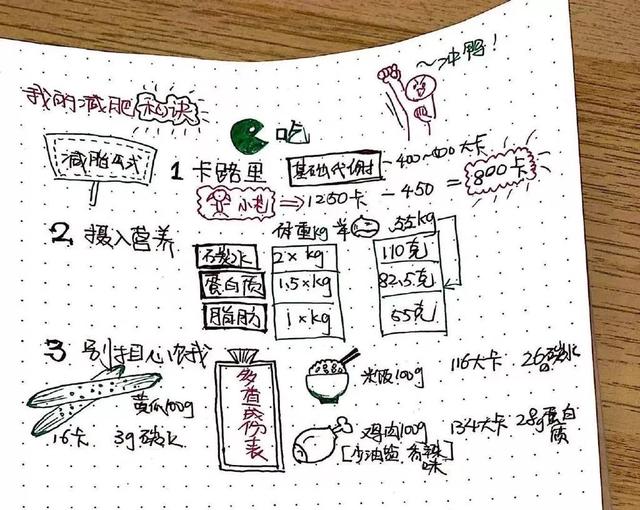 ~冲鸭!
我的减肥秘诀
吃
减脂公式
1 卡路里 基础代谢 -400~400大卡
小芯 ⇒ 1250卡 - 450 = 800卡
2 摄入营养 体重kg 55kg
碳水 2×kg 110克
蛋白质 1.5×kg 82.5克
脂肪 1×kg 55克
3 别担心有我
黄瓜100g
16卡 3g碳水
多查成份表
米饭100g 116大卡 26碳水
鸡肉100g 134大卡 28g蛋白质
[少油盐 香辣味]